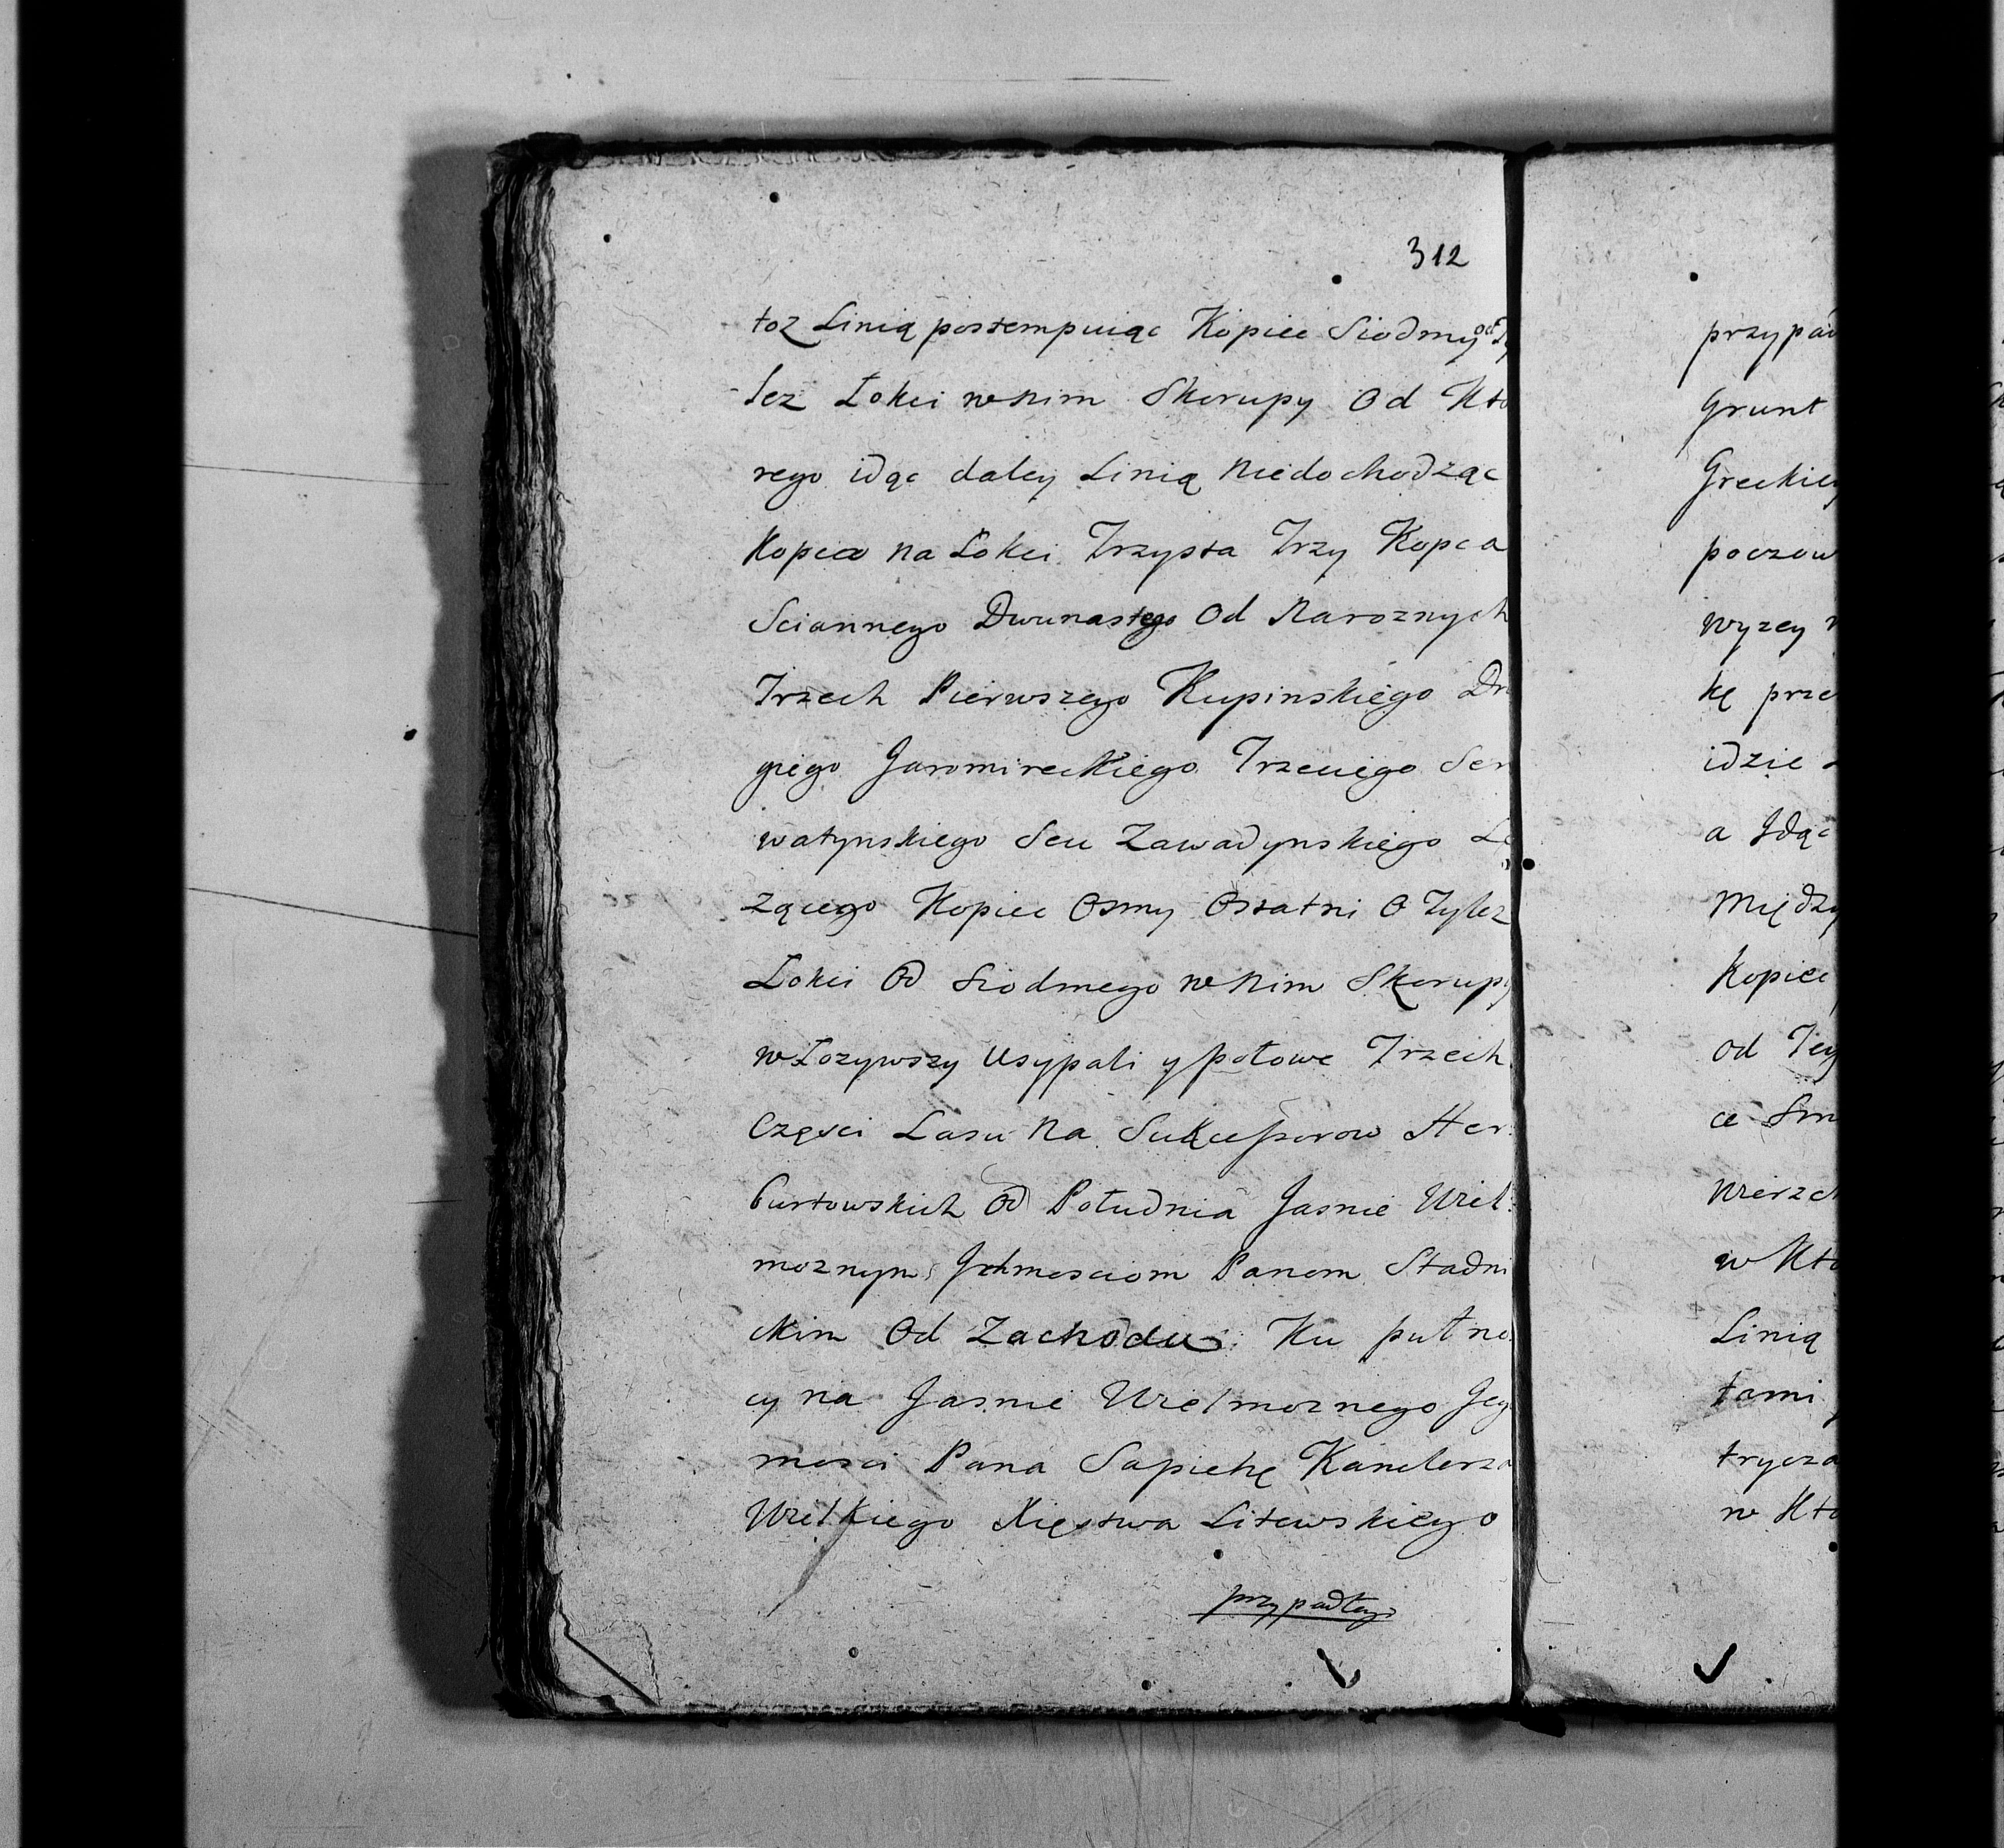 312
toz Linią postempuiąc Kopiec Siodmy od Ty
lez Łokci w nim Skorupy Od Kto
rego idąc daley Linią niedochodząc
Kopca na Łokci Trzysta Trzy Kopca
Sciannego Dwunastego Od Naroznych
Trzech Pierwszego Kupinskiego Dru
giego Jaromireckiego Trzeciego Ser
watynskiego Seu Zawadynskiego Le
zącego Kopiec Osmy Ostatni O Tylez
Łokci Od Siodmego w nim Skorupy
w Łozywszy Usypali y połowe Trzech
Częsci Lasu na Sukcessorow Her:
burtowskich Od Południa Jasnie Wiel:
moznym Ichmosciom Panom Stadni
ckim Od Zachodu Ku pułno
cy na Jasnie Wielmoznego Jeg
mosci Pana Sapiehę Kanclerza
Wielkiego Xięstwa Litewskiego
przypadłey
przypad
Grunt
Greckiey
poczow
wyzey
kę prze
idzie
a Idąc
Między
Kopiec
od Tey
ce
wierzch
w Kto
Linią
tami
trycza
w Kto